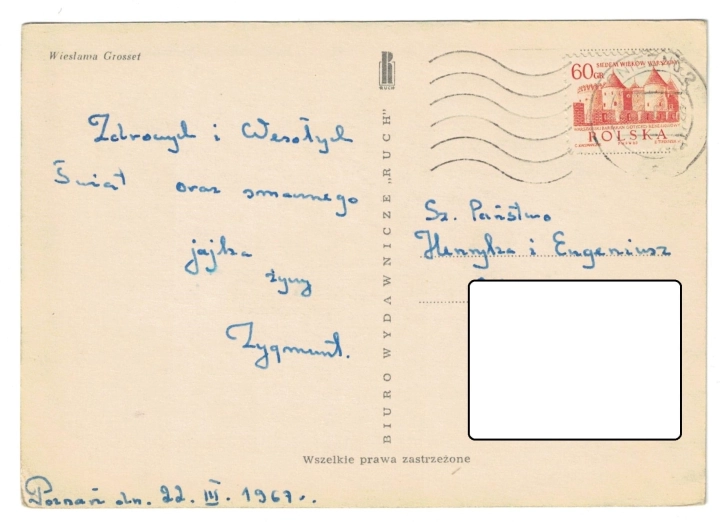 Wiesława Grosset
RUCH
60 GR
SIEDEM WIEKÓW WARSZAWY
POLSKA
Zdrowych i Wesołych
Świąt oraz smacznego
jajka
życzy
Zygmunt.
BIURO WYDAWNICZE „RUCH”
Sz. Państwo
Henryka i Eugeniusz
Wszelkie prawa zastrzeżone
Poznań dn. 22. III. 1967..